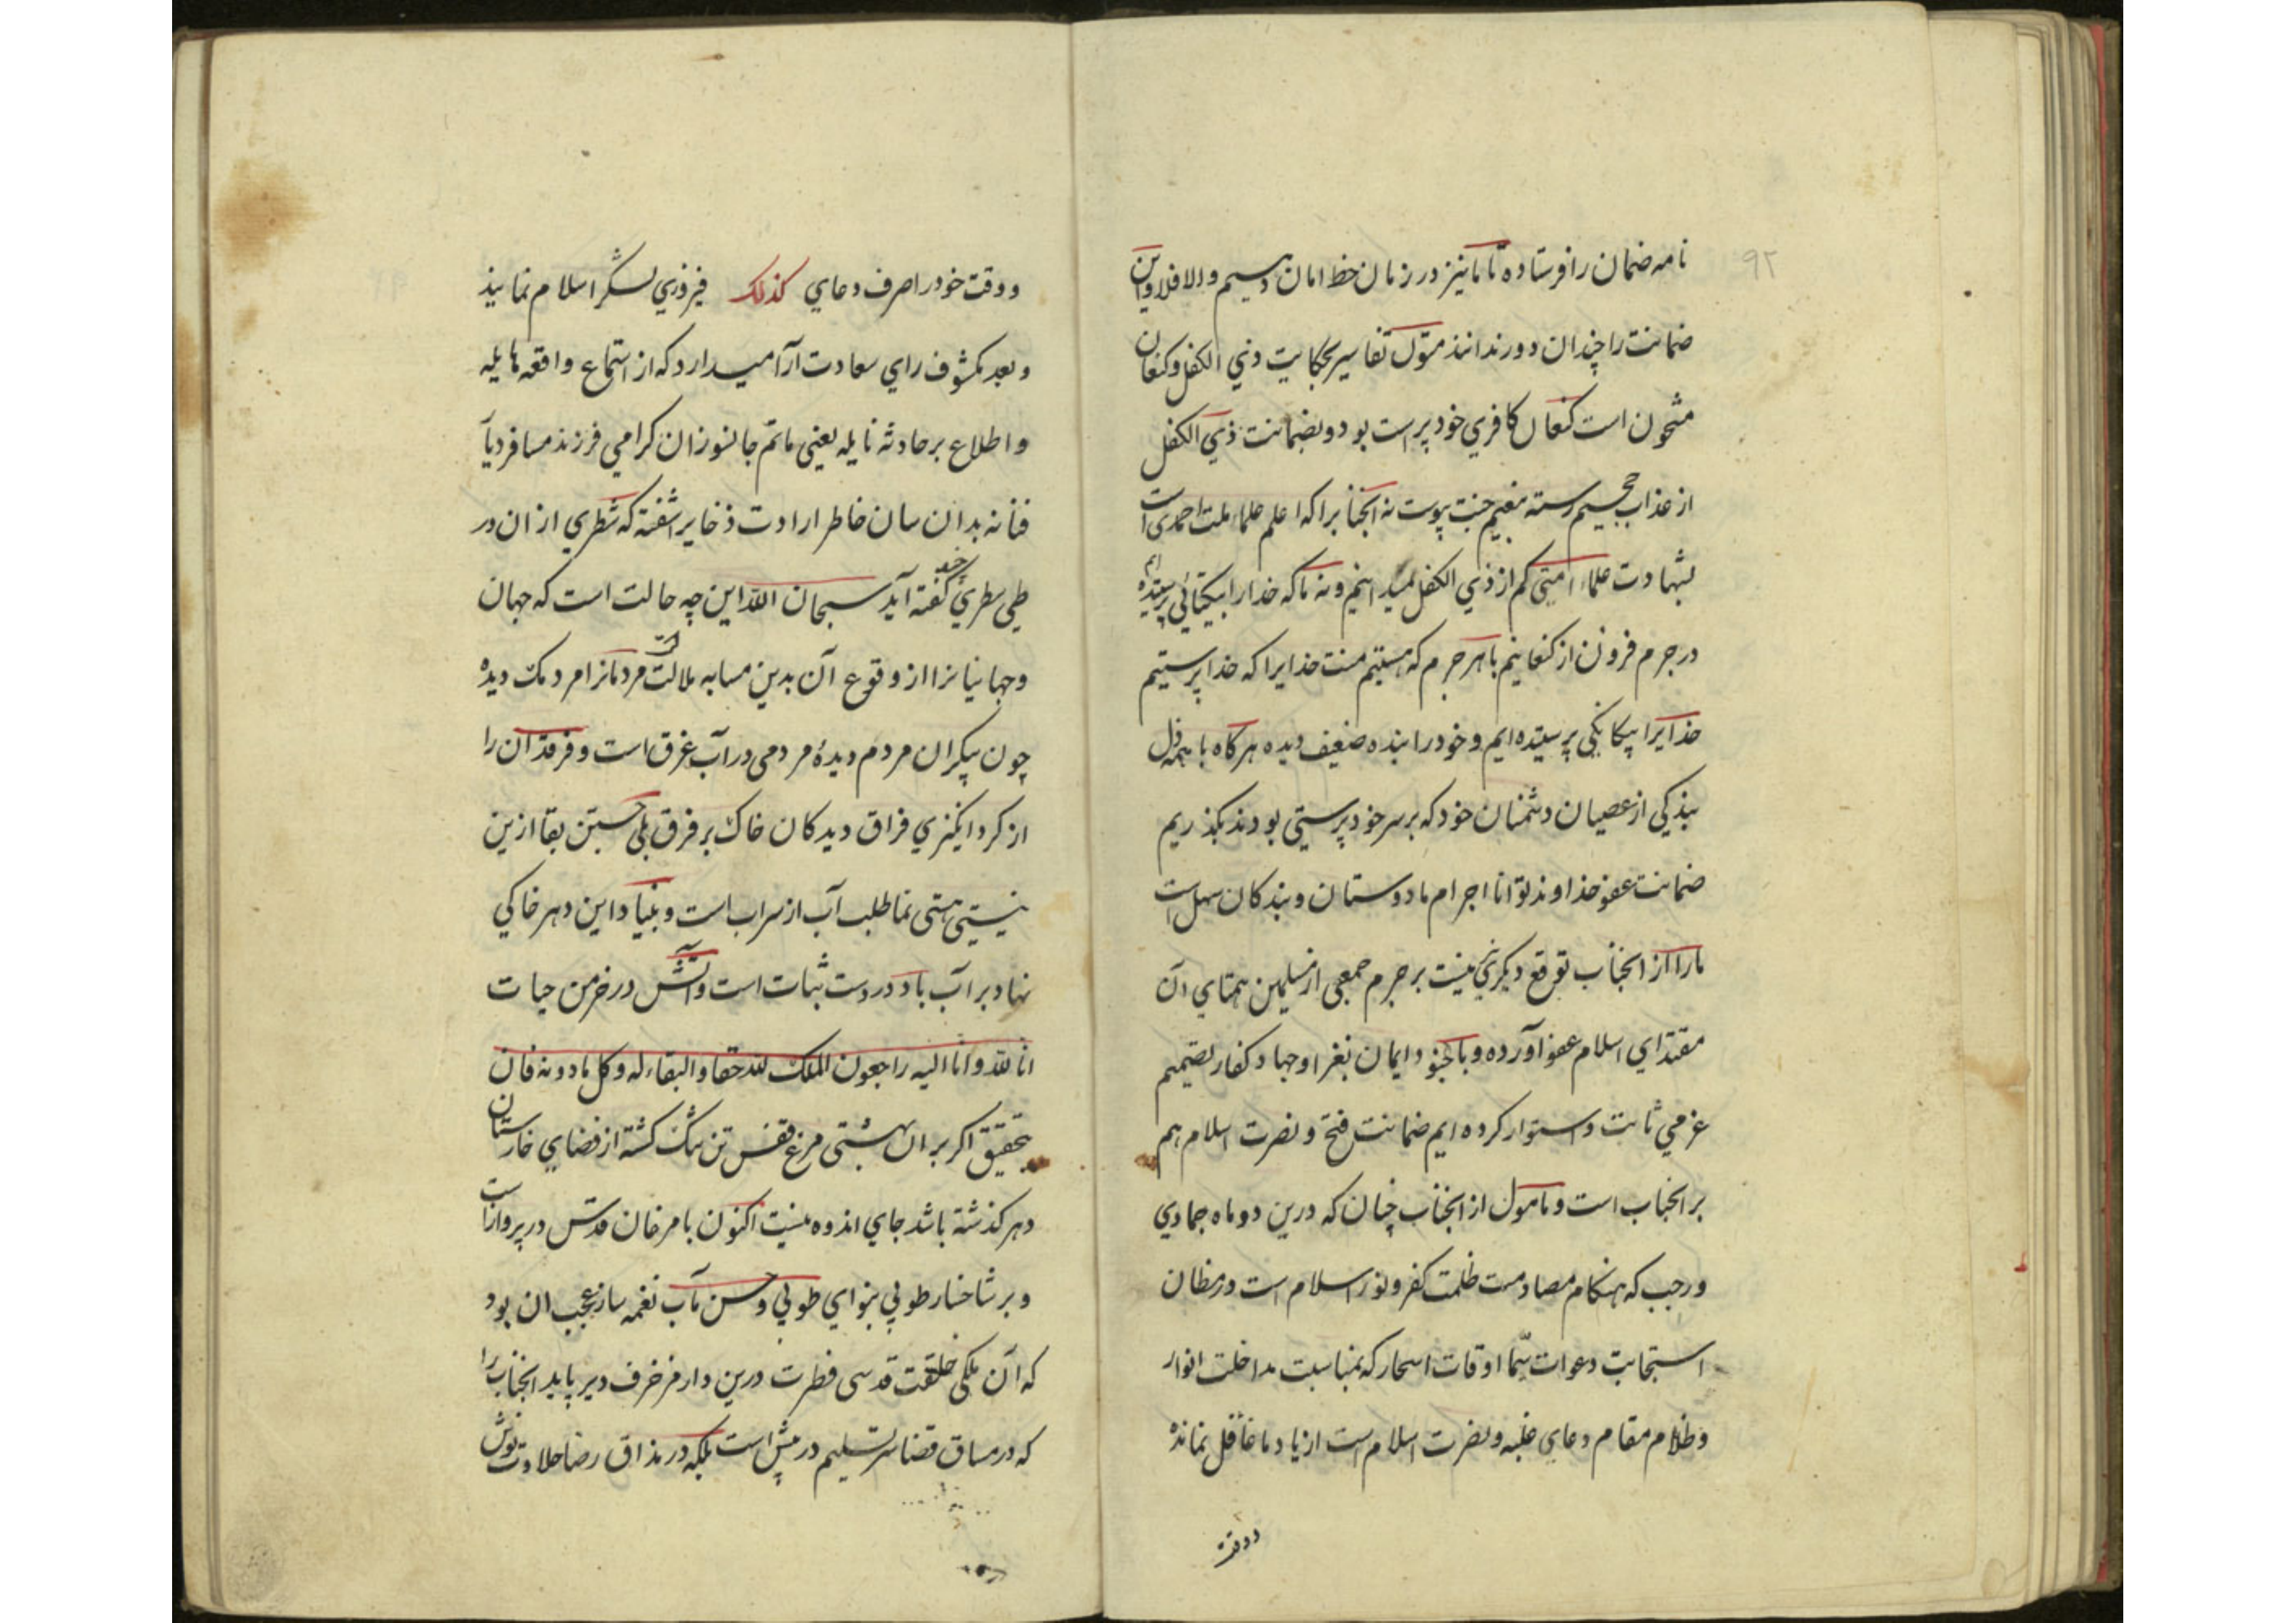 ۹۲
نامه ضمان را فرستاده تا ما نیز در زمان خط امان دهیم والا فلا و این
ضمانت را چندان دور ندانند متون تفاسیر بحکایت ذی الکفل و کنعان
مشحون است کنعان کافری خود پرست بود و بضمانت ذی الکفل
از عذاب جحیم رسته بنعیم جنت پیوست نه آنجناب را که اعلم علماء ملت احمدی است
بشهادت علماء امتی کم از ذی الکفل میدانیم و نه ما که خدا را بیکتائی پرستیده ایم
در جرم فزون از کنعانیم با هر جرم که هستیم منت خدایرا که خدا پرستیم
خدایرا بیکانکی پرستیده ایم و خود را بنده ضعیف دیده هرکاه با همه ذل
بندکی از عصیان دشمنان خود که بر سر خود پرستی بودند بکذریم
ضمانت عفو خداوند توانا اجرام ما دوستان و بندکان سهل است
ما را از آنجناب توقع دیکری نیست بر جرم جمعی از مسلمین همتای آن
مقتدای اسلام عفو آورده و با جنود ایمان بغزا و جهاد کفار تصمیم
عزمی ثابت و استوار کرده ایم ضمانت فتح و نصرت اسلام هم
بر آنجناب است و مامول از آنجناب چنان که درین دو ماه جمادی
و رجب که هنکام مصادمت ظلمت کفر و نور اسلام است در مظان
استجابت دعوات سیّما اوقات اسحار که بمناسبت مداخلت انوار
و ظلام مقام دعای غلبه و نصرت اسلام است از یاد ما غافل نمانده
و وقت
و وقت خود را صرف دعای کذلک فیروزی لشکر اسلام نمایند
و بعد مکشوف رای سعادت آرا میدارد که از استماع واقعه هایله
و اطلاع بر حادثه نایله یعنی ماتم جانسوز ان کرامی فرزند مسافر دیا
فنا نه بدان سان خاطر ارادت ذخایر اشفته که شطری از ان در
طی سطری چند کفته آید سبحان الله این چه حالت است که جهان
و جهانیانرا از وقوع آن بدین مسابه ملالت مردمانرا مردمک دیده
چون پیکر ان مردم دیدهٔ مردمی در آب غرق است و فرقدان را
از کرد انکیزی فراق دیدکان خاک بر فرق بلی جستن بقا ازین
نیستی هستی نما طلب آب از سراب است و بنیاد این دهر خاکی
نهاد بر آب باد در دست ثبات است و آتش در خرمن حیات
انا لله و انا الیه راجعون الملک لله حقا و البقاء له و کل ما دونه فان
بتحقیق اکر بر ان بهشتی مرغ قفس تن تنک کشته از فضای خارستان
دهر کذشته باشد جای اندوه نیست اکنون با مرغان قدس در پرواز است
و بر شاخسار طوبی بنوای طوبی و حسن مآب نغمه ساز عجب ان بود
که آن ملکی خلقت قدسی فطرت درین دار مزخرف دیر پاید آنجناب را
که در مساق قضا سر تسلیم در پیش است بلکه در مذاق رضا حلاوت نوش